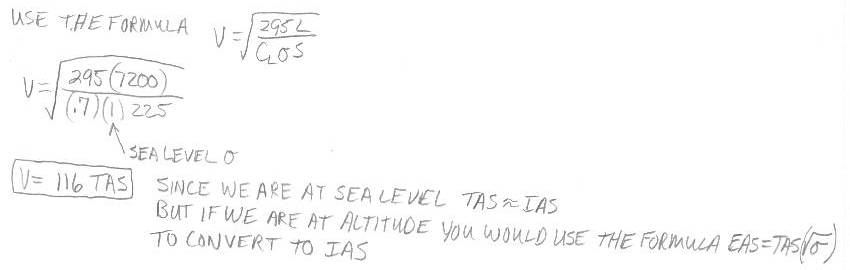 USE THE FORMULA V=√(295L / CLσS)
V=√(295(7200) / (.7)(1)225)
SEA LEVEL σ
V= 116 TAS SINCE WE ARE AT SEA LEVEL TAS≈IAS
BUT IF WE ARE AT ALTITUDE YOU WOULD USE THE FORMULA EAS=TAS(√σ)
TO CONVERT TO IAS